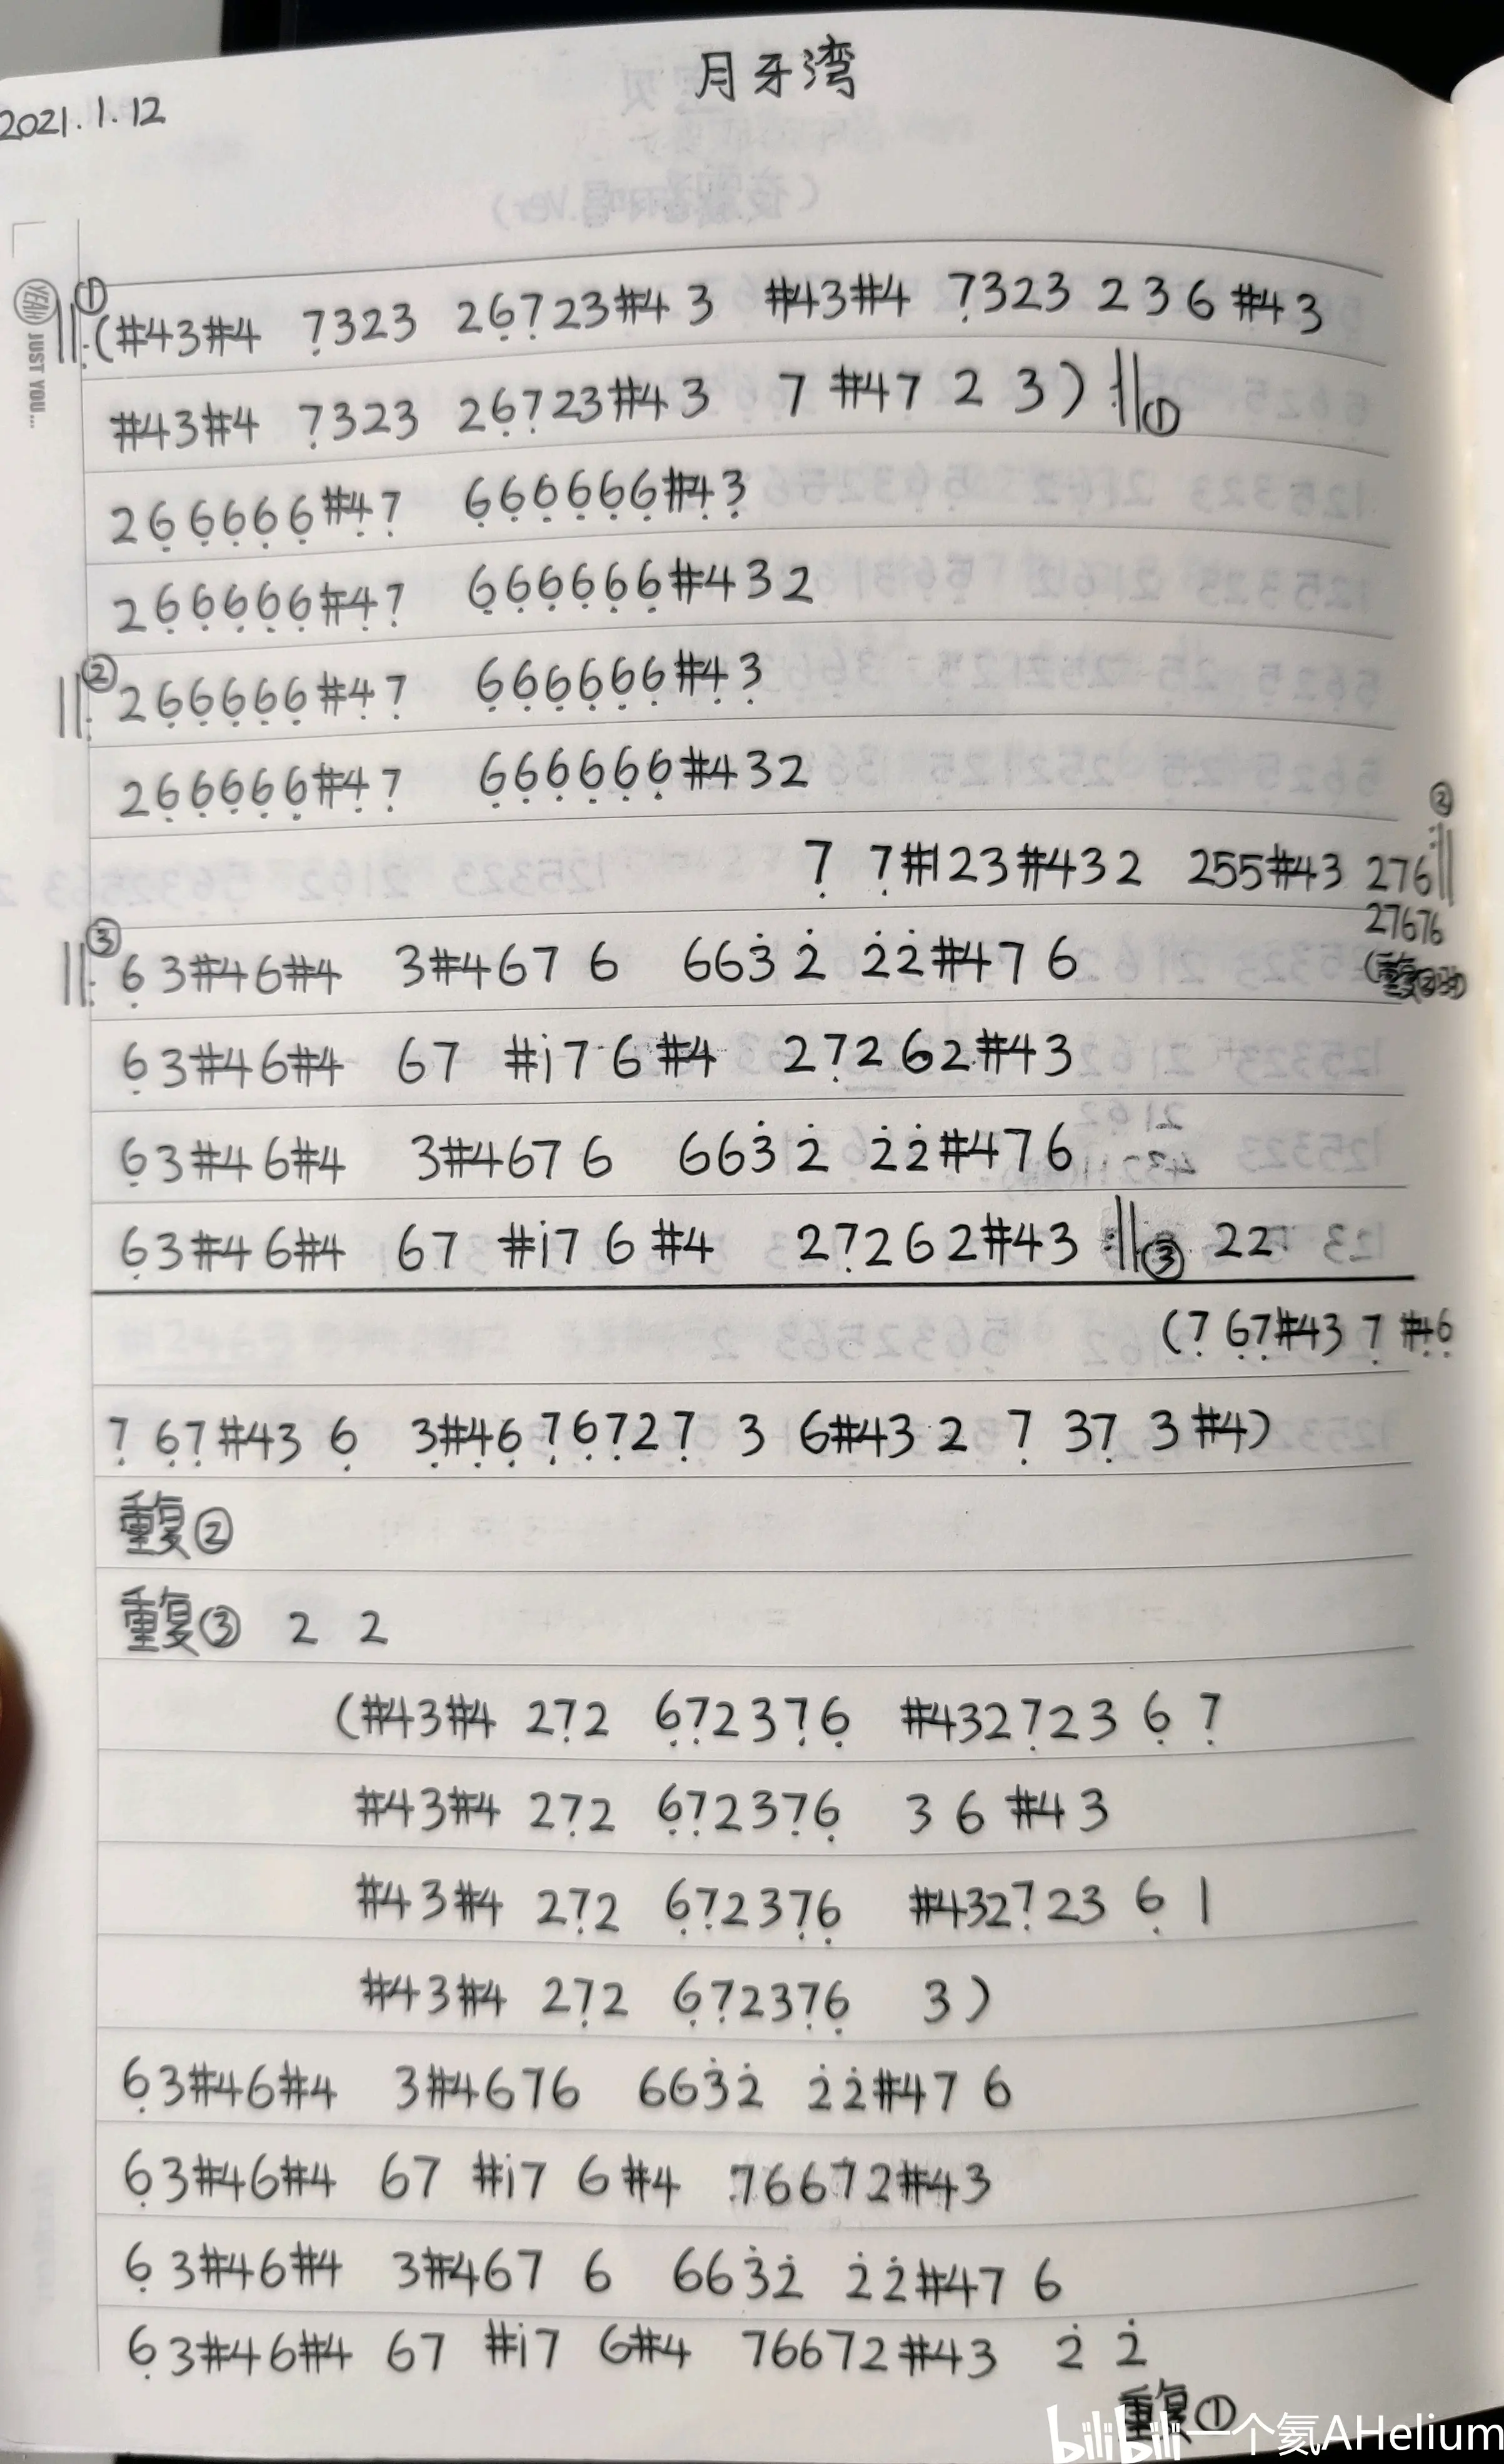 月牙湾
2021.1.12
YEAH JUST YOU...
① ‖:(#43#4 7̣323 26̣7̣23#43 #43#4 7̣323 236 #43
#43#4 7̣323 26̣7̣23#43 7 #47 2 3) :‖①
26̣6̣6̣6̣6̣#4̣7̣ 6̣6̣6̣6̣6̣6̣#4̣3̣
26̣6̣6̣6̣6̣#4̣7̣ 6̣6̣6̣6̣6̣6̣#432
② ‖: 26̣6̣6̣6̣6̣#4̣7̣ 6̣6̣6̣6̣6̣6̣#4̣3̣
26̣6̣6̣6̣6̣#4̣7̣ 6̣6̣6̣6̣6̣6̣#432
7̣ 7̣#123#432 255#43 276 :‖②
27676
③ ‖: 6̣3#46#4 3#467 6 663̇ 2̇ 2̇2̇#47 6
6̣3#46#4 67 #i7 6 #4 27̣26̣2#43
6̣3#46#4 3#467 6 663̇ 2̇ 2̇2̇#476
6̣3#46#4 67 #i7 6 #4 27̣262#43 :‖③ 22
(7̣ 6̣7̣#43 7̣ #4̣6̣
7̣ 6̣7̣#43 6̣ 3̣#4̣6̣7̣6̣7̣27̣ 3 6#43 2 7̣ 37̣ 3 #4)
重复②
重复③ 2 2
(#43#4 27̣2 6̣7̣237̣6̣ #4327̣23 6̣ 7̣
#43#4 27̣2 6̣7̣237̣6̣ 3 6 #43
#43#4 27̣2 6̣7̣237̣6̣ #4327̣23 6̣ 1
#43#4 27̣2 6̣7̣237̣6̣ 3)
6̣3#46#4 3#4676 663̇2̇ 2̇2̇#47 6
6̣3#46#4 67 #i7 6#4 76672#43
6̣3#46#4 3#467 6 663̇2̇ 2̇2̇#47 6
6̣3#46#4 67 #i7 6#4 76672#43 2̇ 2̇
重复①
bilibili 一个氦AHelium